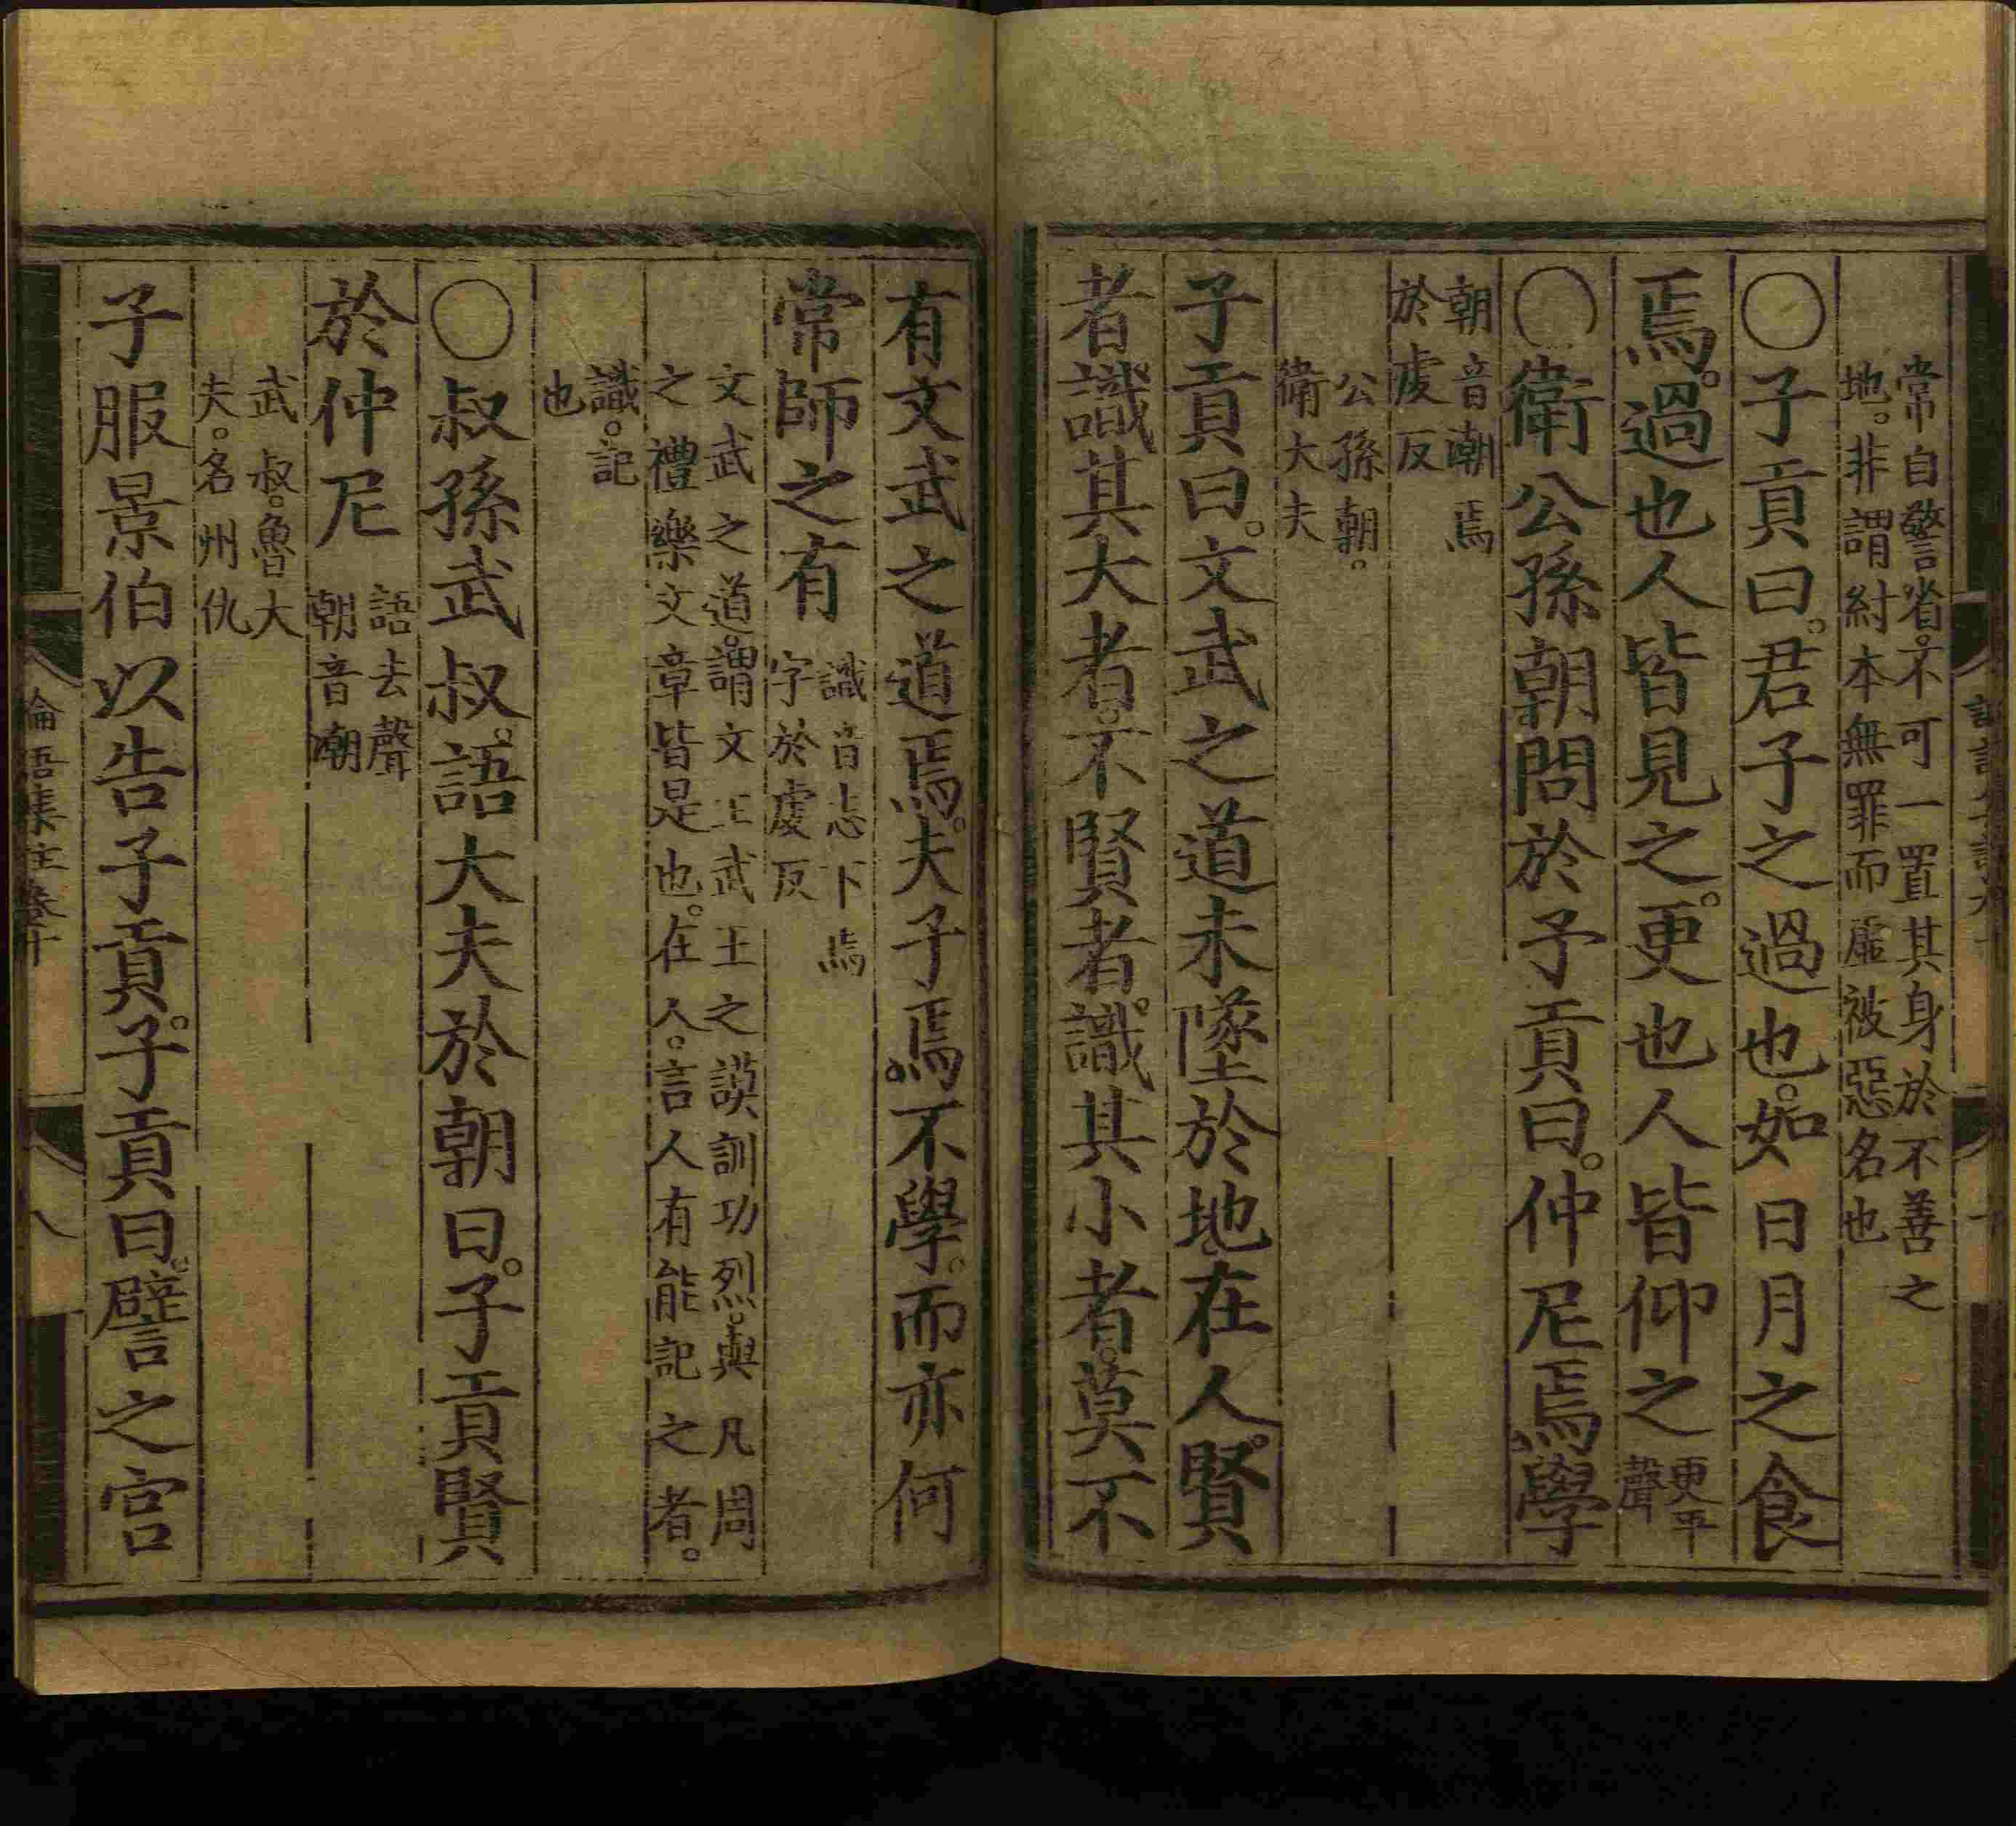 常自警省。不可一置其身於不善之
地。非謂紂本無罪而虛被惡名也
○子貢曰。君子之過也。如日月之食
焉。過也人皆見之。更也人皆仰之更平
聲
○衛公孫朝問於子貢曰。仲尼焉學
朝音潮焉
於虔反
公孫朝。
衛大夫
子貢曰。文武之道未墜於地。在人。賢
者識其大者。不賢者。識其小者。莫不
有文武之道焉。夫子焉。不學。而亦何
常師之有識音志下焉
字於虔反
文武之道。謂文王武王之謨訓功烈。與凡周
之禮樂文章皆是也。在人。言人有能記之者。
識。記
也
○叔孫武叔。語大夫於朝曰。子貢賢
於仲尼語去聲
朝音潮
武叔。魯大
夫。名州仇
子服景伯以告子貢。子貢曰。譬之宮
論語集註卷十
八